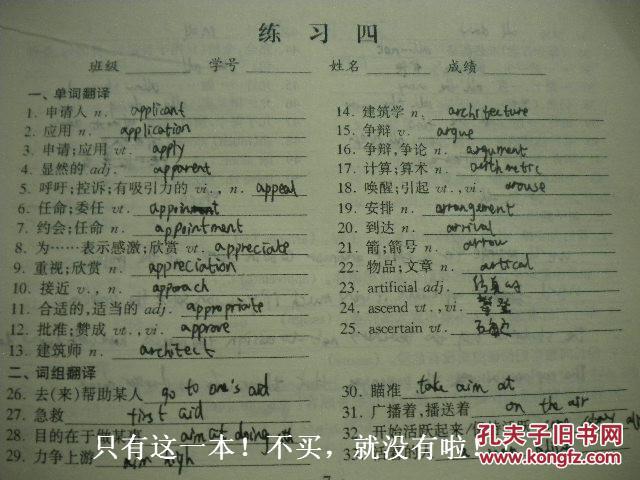 练 习 四
班级 学号 姓名 成绩
一、单词翻译
1. 申请人 n. applicant
2. 应用 n. application
3. 申请;应用 vt. apply
4. 显然的 adj. apparent
5. 呼吁;控诉;有吸引力的 vi., n. appeal
6. 任命;委任 vt.
7. 约会;任命 n. appointment
8. 为……表示感激;欣赏 vt. appreciate
9. 重视;欣赏 n. appreciation
10. 接近 v., n. apporach
11. 合适的,适当的 adj. appropriate
12. 批准;赞成 vt., vi. approve
13. 建筑师 n. architect
14. 建筑学 n. architecture
15. 争辩 v. argue
16. 争辩,争论 n. argument
17. 计算;算术 n. arithmetric
18. 唤醒;引起 vt., vi. arouse
19. 安排 n. arrangement
20. 到达 n. arrival
21. 箭;箭号 n. arrow
22. 物品;文章 n. artical
23. artificial adj.
24. ascend vt., vi.
25. ascertain vt.
二、词组翻译
26. 去(来)帮助某人 go to one's aid
27. 急救 first aid
28. 目的在于做某事 aim at
29. 力争上游 aim high
30. 瞄准 take aim at
31. 广播着,播送着 on the air
32. 开始活跃起来
只有这一本！不买，就没有啦！
孔夫子旧书网
www.kongfz.com